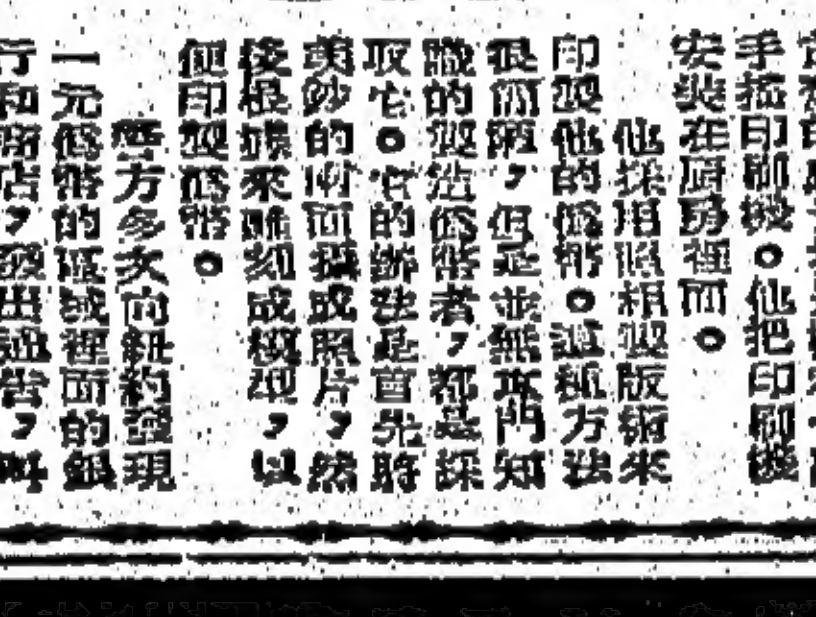 手搖印刷機。他把印刷機
安裝在厨房裡面。
他採用照相製版術來
印製他的僞幣。這種方法
很簡陋,但是並無專門知
識的製造僞幣者,都是採
取它。它的辦法是首先將
美鈔的兩面攝成照片,然
後根據來雕刻成模型,以
便印製僞幣。
警方多次向紐約發現
一元僞幣的區域裡面的銀
行和商店,發出通告,叫